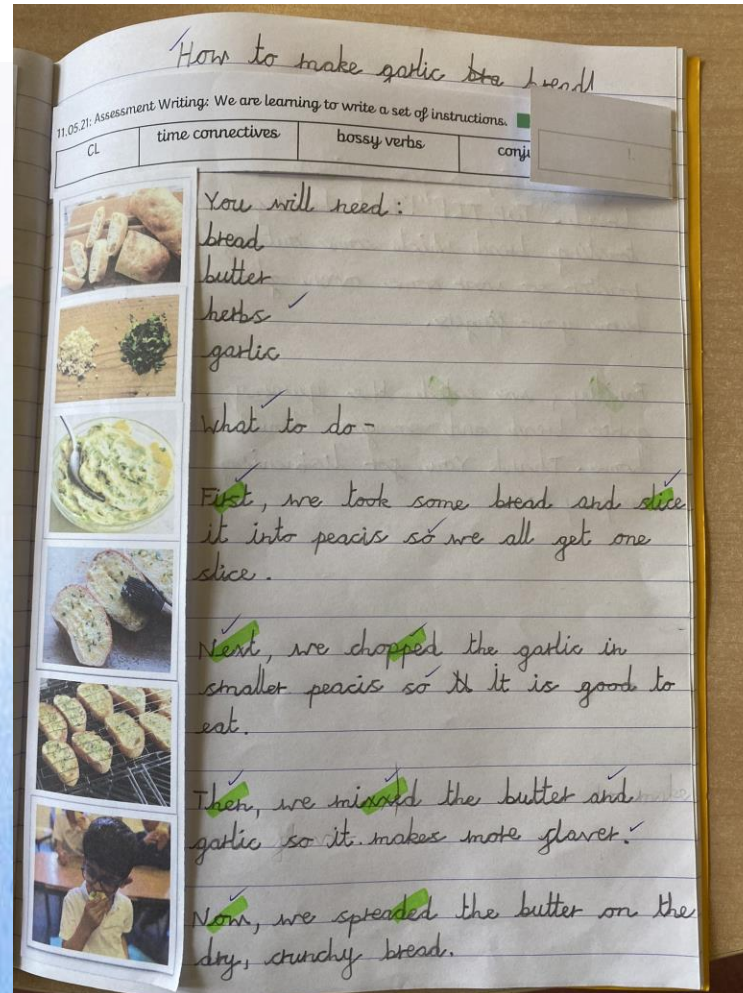 How to make garlic bre bread!
11.05.21: Assessment Writing: We are learning to write a set of instructions.
CL time connectives bossy verbs conju
You will need:
bread
butter
herbs
garlic
What to do -
First, we took some bread and slice
it into peacis so we all get one
slice.
Next, we chopped the garlic in
smaller peacis so it is good to
eat.
Then, we mixxed the butter and
garlic so it makes more flaver.
Now, we spreaded the butter on the
dry, crunchy bread.